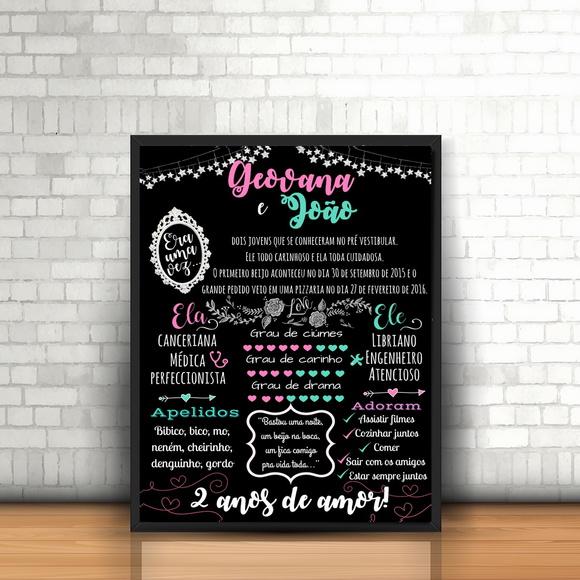 Geovana
e João
Era
uma
vez...
DOIS JOVENS QUE SE CONHECERAM NO PRÉ VESTIBULAR.
ELE TODO CARINHOSO E ELA TODA CUIDADOSA.
O PRIMEIRO BEIJO ACONTECEU NO DIA 30 DE SETEMBRO DE 2015 E O
GRANDE PEDIDO VEIO EM UMA PIZZARIA NO DIA 27 DE FEVEREIRO DE 2016.
Love
Ela
CANCERIANA
MÉDICA
PERFECCIONISTA
Grau de ciúmes
Grau de carinho
Grau de drama
Ele
LIBRIANO
ENGENHEIRO
ATENCIOSO
Apelidos
Bibico, bico, mo,
neném, cheirinho,
denguinho, gordo
"Bastou uma noite,
um beijo na boca,
um fica comigo
pra vida toda..."
Adoram
Assistir filmes
Cozinhar juntos
Comer
Sair com os amigos
Estar sempre juntos
2 anos de amor!